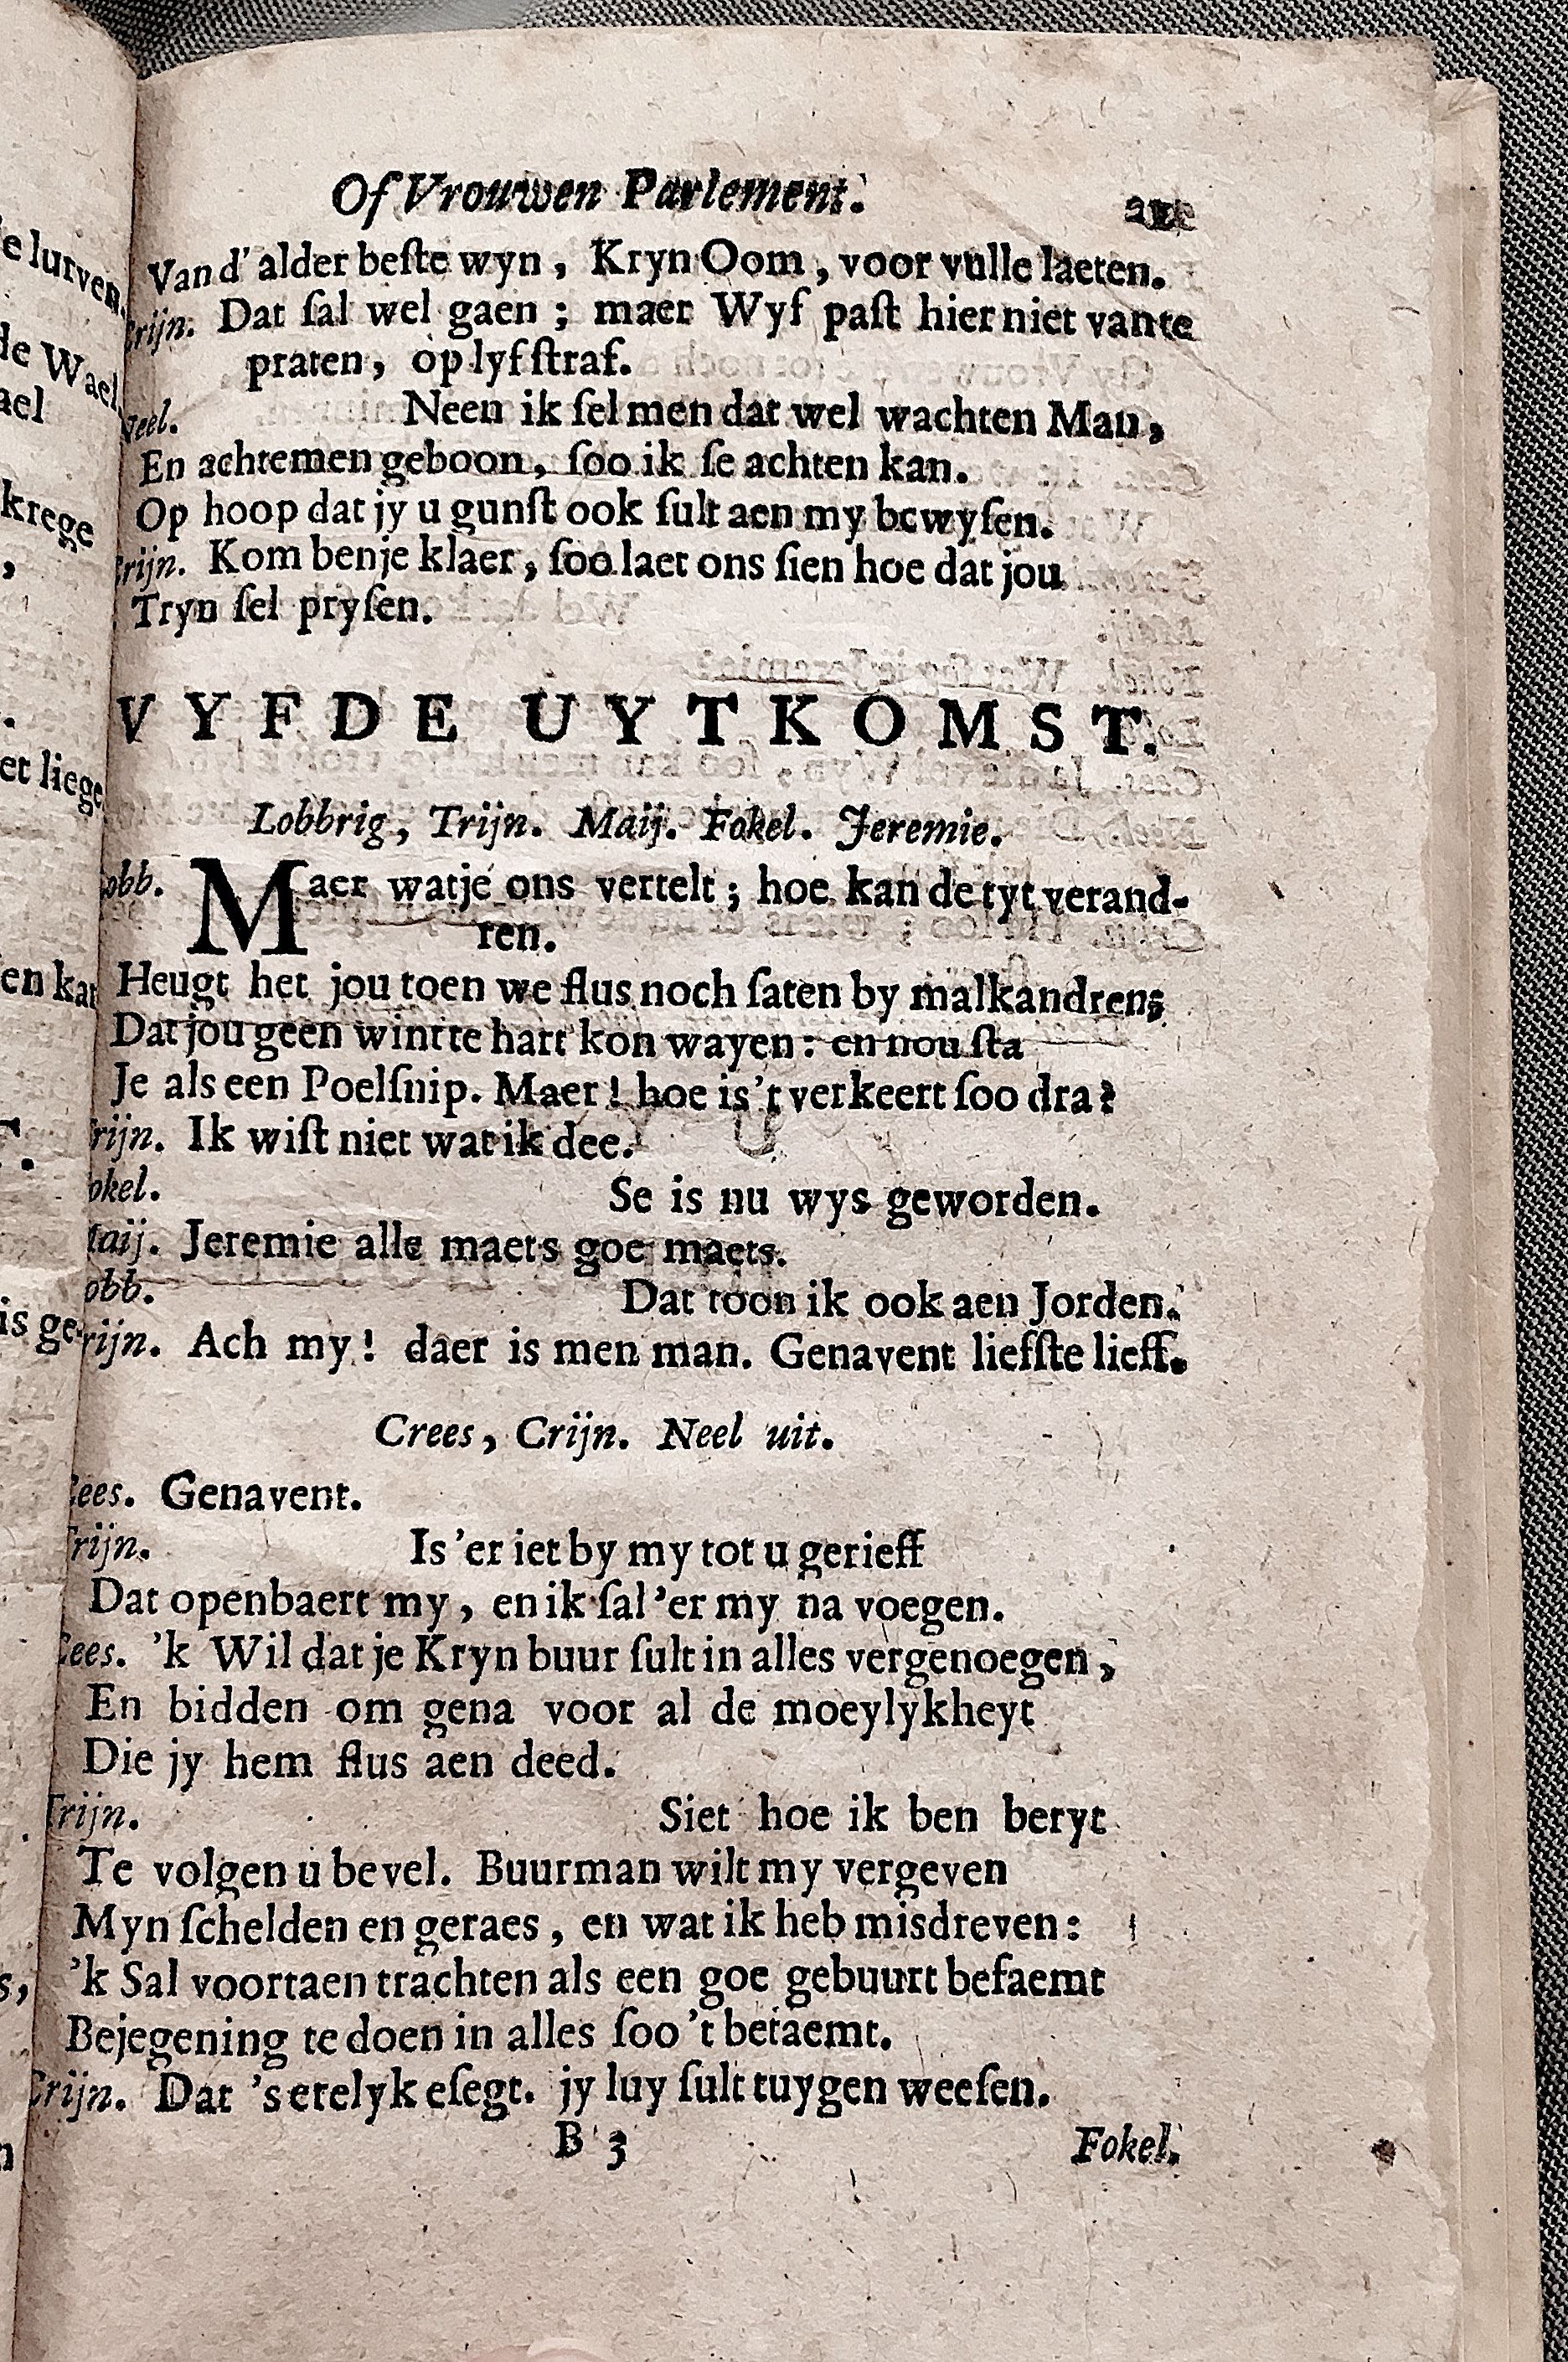 Of Vrouwen Parlement.
Van d'alder beſte wyn, Kryn Oom, voor vulle laeten.
rijn. Dat ſal wel gaen; maer Wyf paſt hier niet van te
praten, op lyfſtraf.
Neel. Neen ik ſel men dat wel wachten Man,
En achtemen geboon, ſoo ik ſe achten kan.
Op hoop dat jy u gunſt ook ſult aen my bewyſen.
rijn. Kom benje klaer, ſoo laet ons ſien hoe dat jou
Tryn ſel pryſen.
VYFDE UYTKOMST.
Lobbrig, Trijn. Maij. Fokel. Jeremie.
obb. Maer watje ons vertelt; hoe kan de tyt verand-
ren.
Heugt het jou toen we flus noch ſaten by malkandren;
Dat jou geen wint te hart kon wayen: en nou ſta
Je als een Poelſnip. Maer! hoe is't verkeert ſoo dra?
rijn. Ik wiſt niet wat ik dee.
okel. Se is nu wys geworden.
aij. Jeremie alle maets goe maets.
obb. Dat toon ik ook aen Jorden.
rijn. Ach my! daer is men man. Genavent liefſte lieff.
Crees, Crijn. Neel uit.
Cees. Genavent.
Trijn. Is'er iet by my tot u gerieff
Dat openbaert my, en ik ſal'er my na voegen.
Cees. 'k Wil dat je Kryn buur ſult in alles vergenoegen,
En bidden om gena voor al de moeylykheyt
Die jy hem flus aen deed.
Trijn. Siet hoe ik ben beryt
Te volgen u bevel. Buurman wilt my vergeven
Myn ſchelden en geraes, en wat ik heb misdreven:
'k Sal voortaen trachten als een goe gebuurt befaemt
Bejegening te doen in alles ſoo't betaemt.
Crijn. Dat 's etelyk eſegt. jy luy ſult tuygen weeſen.
B 3 Fokel.